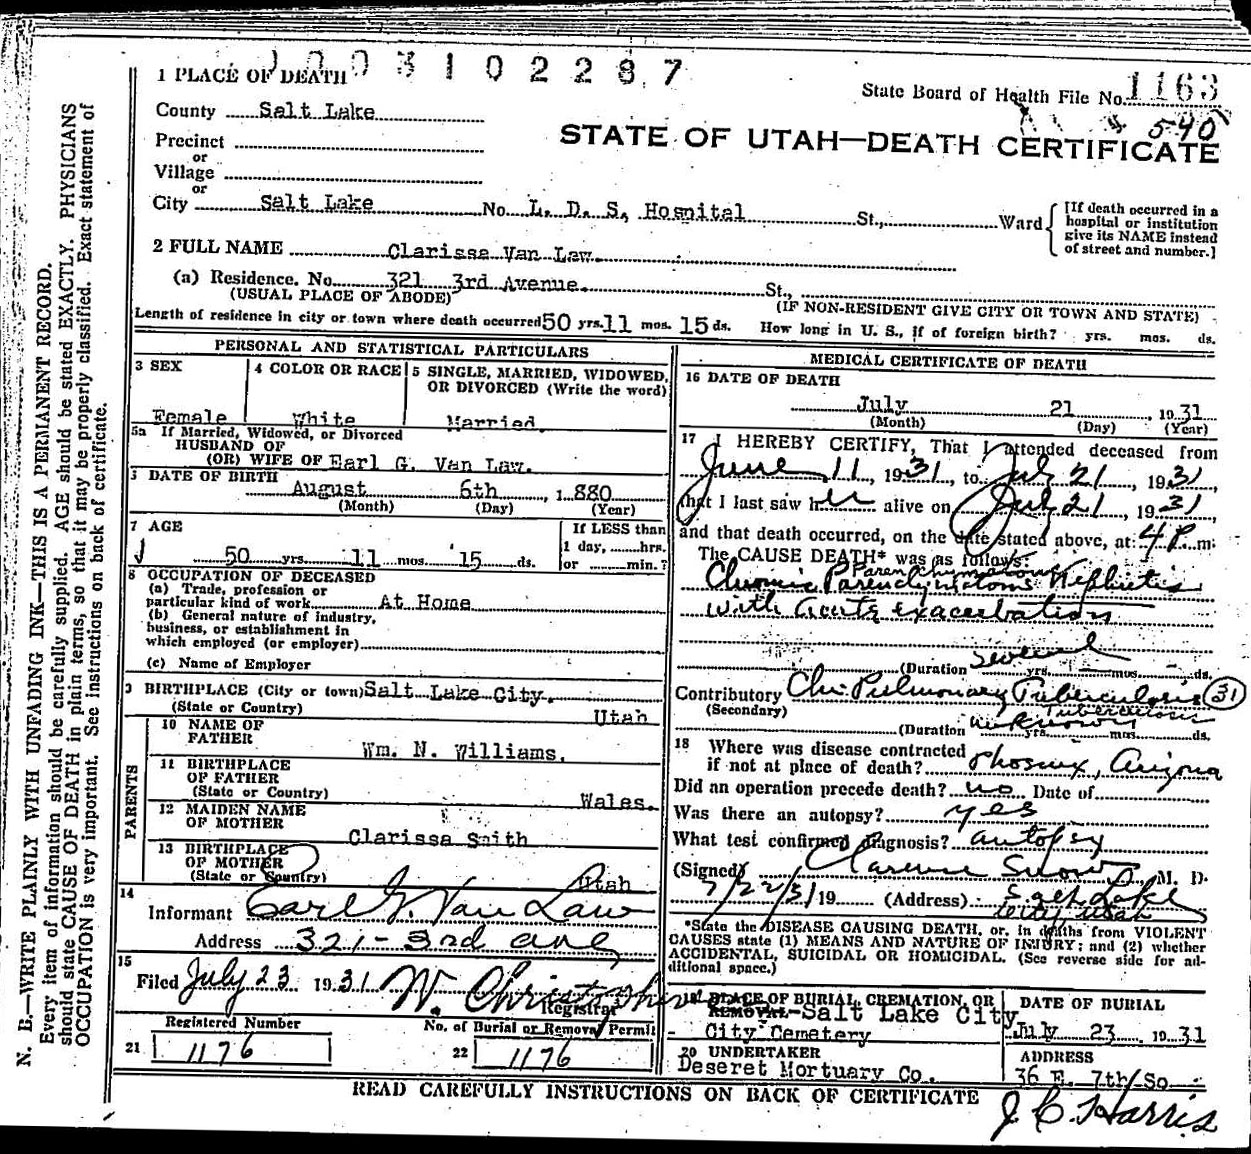 1003102287
1 PLACE OF DEATH
State Board of Health File No. 1163
County Salt Lake
540
STATE OF UTAH—DEATH CERTIFICATE
Precinct
or
Village
or
City Salt Lake No. L. D. S. Hospital St., Ward
[If death occurred in a
hospital or institution
give its NAME instead
of street and number.]
2 FULL NAME Clarissa Van Law.
(a) Residence. No. 321 3rd Avenue. St.,
(USUAL PLACE OF ABODE) (IF NON-RESIDENT GIVE CITY OR TOWN AND STATE)
Length of residence in city or town where death occurred 50 yrs. 11 mos. 15 ds. How long in U. S., if of foreign birth? yrs. mos. ds.
PERSONAL AND STATISTICAL PARTICULARS
3 SEX
Female
4 COLOR OR RACE
White
5 SINGLE, MARRIED, WIDOWED,
OR DIVORCED (Write the word)
Married.
5a If Married, Widowed, or Divorced
HUSBAND OF
(OR) WIFE OF Earl G. Van Law.
DATE OF BIRTH
August 6th, 1880
(Month) (Day) (Year)
7 AGE
50 yrs. 11 mos. 15 ds.
If LESS than
1 day, hrs.
or min.?
8 OCCUPATION OF DECEASED
(a) Trade, profession or
particular kind of work At Home
(b) General nature of industry,
business, or establishment in
which employed (or employer)
(c) Name of Employer
9 BIRTHPLACE (City or town) Salt Lake City.
(State or Country) Utah
PARENTS
10 NAME OF
FATHER Wm. N. Williams.
11 BIRTHPLACE
OF FATHER
(State or Country) Wales.
12 MAIDEN NAME
OF MOTHER Clarissa Smith
13 BIRTHPLACE
OF MOTHER
(State or Country) Utah
14
Informant Earl G. Van Law
Address 321-3rd ave
15
Filed July 23 1931 W. Christopherson
Registrar
Registered Number
21 1176
No. of Burial or Removal Permit
22 1176
MEDICAL CERTIFICATE OF DEATH
16 DATE OF DEATH
July 21, 1931
(Month) (Day) (Year)
17 I HEREBY CERTIFY, That I attended deceased from
June 11, 1931, to July 21, 1931,
that I last saw her alive on July 21, 1931,
and that death occurred, on the date stated above, at 4 P. m.
The CAUSE DEATH* was as follows:
Chronic Parenchymatous Nephritis
with acute exacerbation
(Duration several yrs. mos. ds.
Contributory Chr. Pulmonary Tuberculosis 31
(Secondary) Tuberculosis
(Duration unknown yrs. mos. ds.
18 Where was disease contracted
if not at place of death? Phoenix, Arizona
Did an operation precede death? no Date of
Was there an autopsy? yes
What test confirmed diagnosis? autopsy
(Signed) Clarence Snow, M. D.
7/22/31 19 (Address) Salt Lake
City, Utah
*State the DISEASE CAUSING DEATH, or, in deaths from VIOLENT
CAUSES state (1) MEANS AND NATURE OF INJURY; and (2) whether
ACCIDENTAL, SUICIDAL OR HOMICIDAL. (See reverse side for ad-
ditional space.)
19 PLACE OF BURIAL, CREMATION, OR
REMOVAL-Salt Lake City
City Cemetery
DATE OF BURIAL
July 23 1931
20 UNDERTAKER
Deseret Mortuary Co.
ADDRESS
36 E. 7th/So
READ CAREFULLY INSTRUCTIONS ON BACK OF CERTIFICATE
J. C. Harris
N. B.—WRITE PLAINLY WITH UNFADING INK—THIS IS A PERMANENT RECORD.
Every item of information should be carefully supplied. AGE should be stated EXACTLY. PHYSICIANS
should state CAUSE OF DEATH in plain terms, so that it may be properly classified. Exact statement of
OCCUPATION is very important. See instructions on back of certificate.